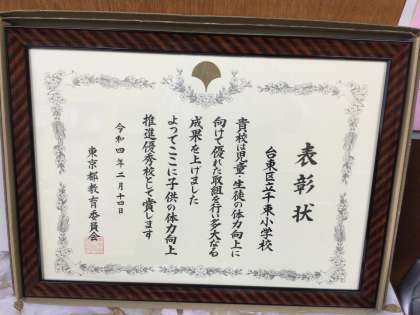 表彰状
台東区立千束小学校
貴校は児童・生徒の体力向上に
向けて優れた取組を行い多大なる
成果を上げました
よってここに子供の体力向上
推進優秀校として賞します
令和四年二月十四日
東京都教育委員会